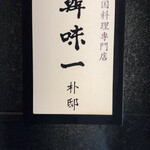 国料理専門店
韓味一
朴邸